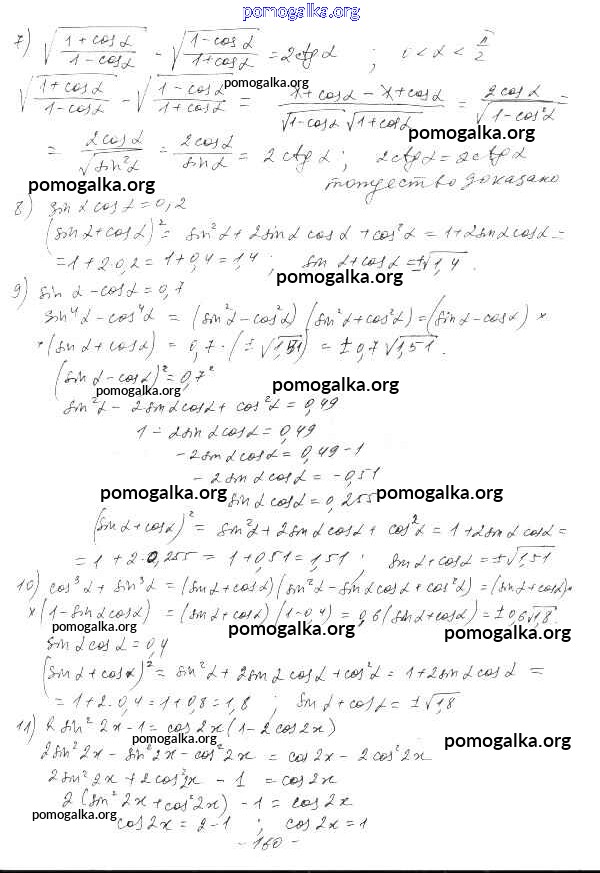 pomogalka.org
7) √((1+cosα)/(1−cosα)) − √((1−cosα)/(1+cosα)) = 2ctgα ; 0<α<π/2
√((1+cosα)/(1−cosα)) − √((1−cosα)/(1+cosα)) = (1+cosα−1+cosα)/(√(1−cosα) √(1+cosα)) = 2cosα/√(1−cos²α) =
pomogalka.org
pomogalka.org
= 2cosα/√(sin²α) = 2cosα/sinα = 2ctgα ; 2ctgα = 2ctgα
pomogalka.org
тождество доказано
8) sinα cosα = 0,2
pomogalka.org
(sinα+cosα)² = sin²α + 2sinα cosα + cos²α = 1+2sinαcosα =
= 1+2·0,2 = 1+0,4 = 1,4 ; sinα+cosα = ±√1,4.
pomogalka.org
9) sinα − cosα = 0,7
sin⁴α − cos⁴α = (sin²α − cos²α)(sin²α+cos²α) = (sinα−cosα) ×
×(sinα+cosα) = 0,7·(±√1,51) = ±0,7√1,51.
(sinα−cosα)² = 0,7²
pomogalka.org pomogalka.org
sin²α − 2sinαcosα + cos²α = 0,49
1 − 2sinαcosα = 0,49
−2sinαcosα = 0,49−1
−2sinαcosα = −0,51
pomogalka.org pomogalka.org pomogalka.org
sinαcosα = 0,255
(sinα+cosα)² = sin²α+2sinαcosα+cos²α = 1+2sinαcosα =
= 1+2·0,255 = 1+0,51 = 1,51 ; sinα+cosα = ±√1,51
10) cos³α + sin³α = (sinα+cosα)(sin²α−sinαcosα+cos²α) = (sinα+cosα)·
×(1−sinαcosα) = (sinα+cosα)(1−0,4) = 0,6(sinα+cosα) = ±0,6√1,8.
pomogalka.org pomogalka.org pomogalka.org
sinαcosα = 0,4
(sinα+cosα)² = sin²α+2sinαcosα+cos²α = 1+2sinαcosα =
= 1+2·0,4 = 1+0,8 = 1,8 ; sinα+cosα = ±√1,8
11) 2sin²2x−1 = cos2x(1−2cos2x)
pomogalka.org pomogalka.org
2sin²2x − sin²2x − cos²2x = cos2x − 2cos²2x
2sin²2x + 2cos²2x − 1 = cos2x
2(sin²2x+cos²2x) − 1 = cos2x
pomogalka.org
cos2x = 2−1 ; cos2x = 1
pomogalka.org
- 160 -